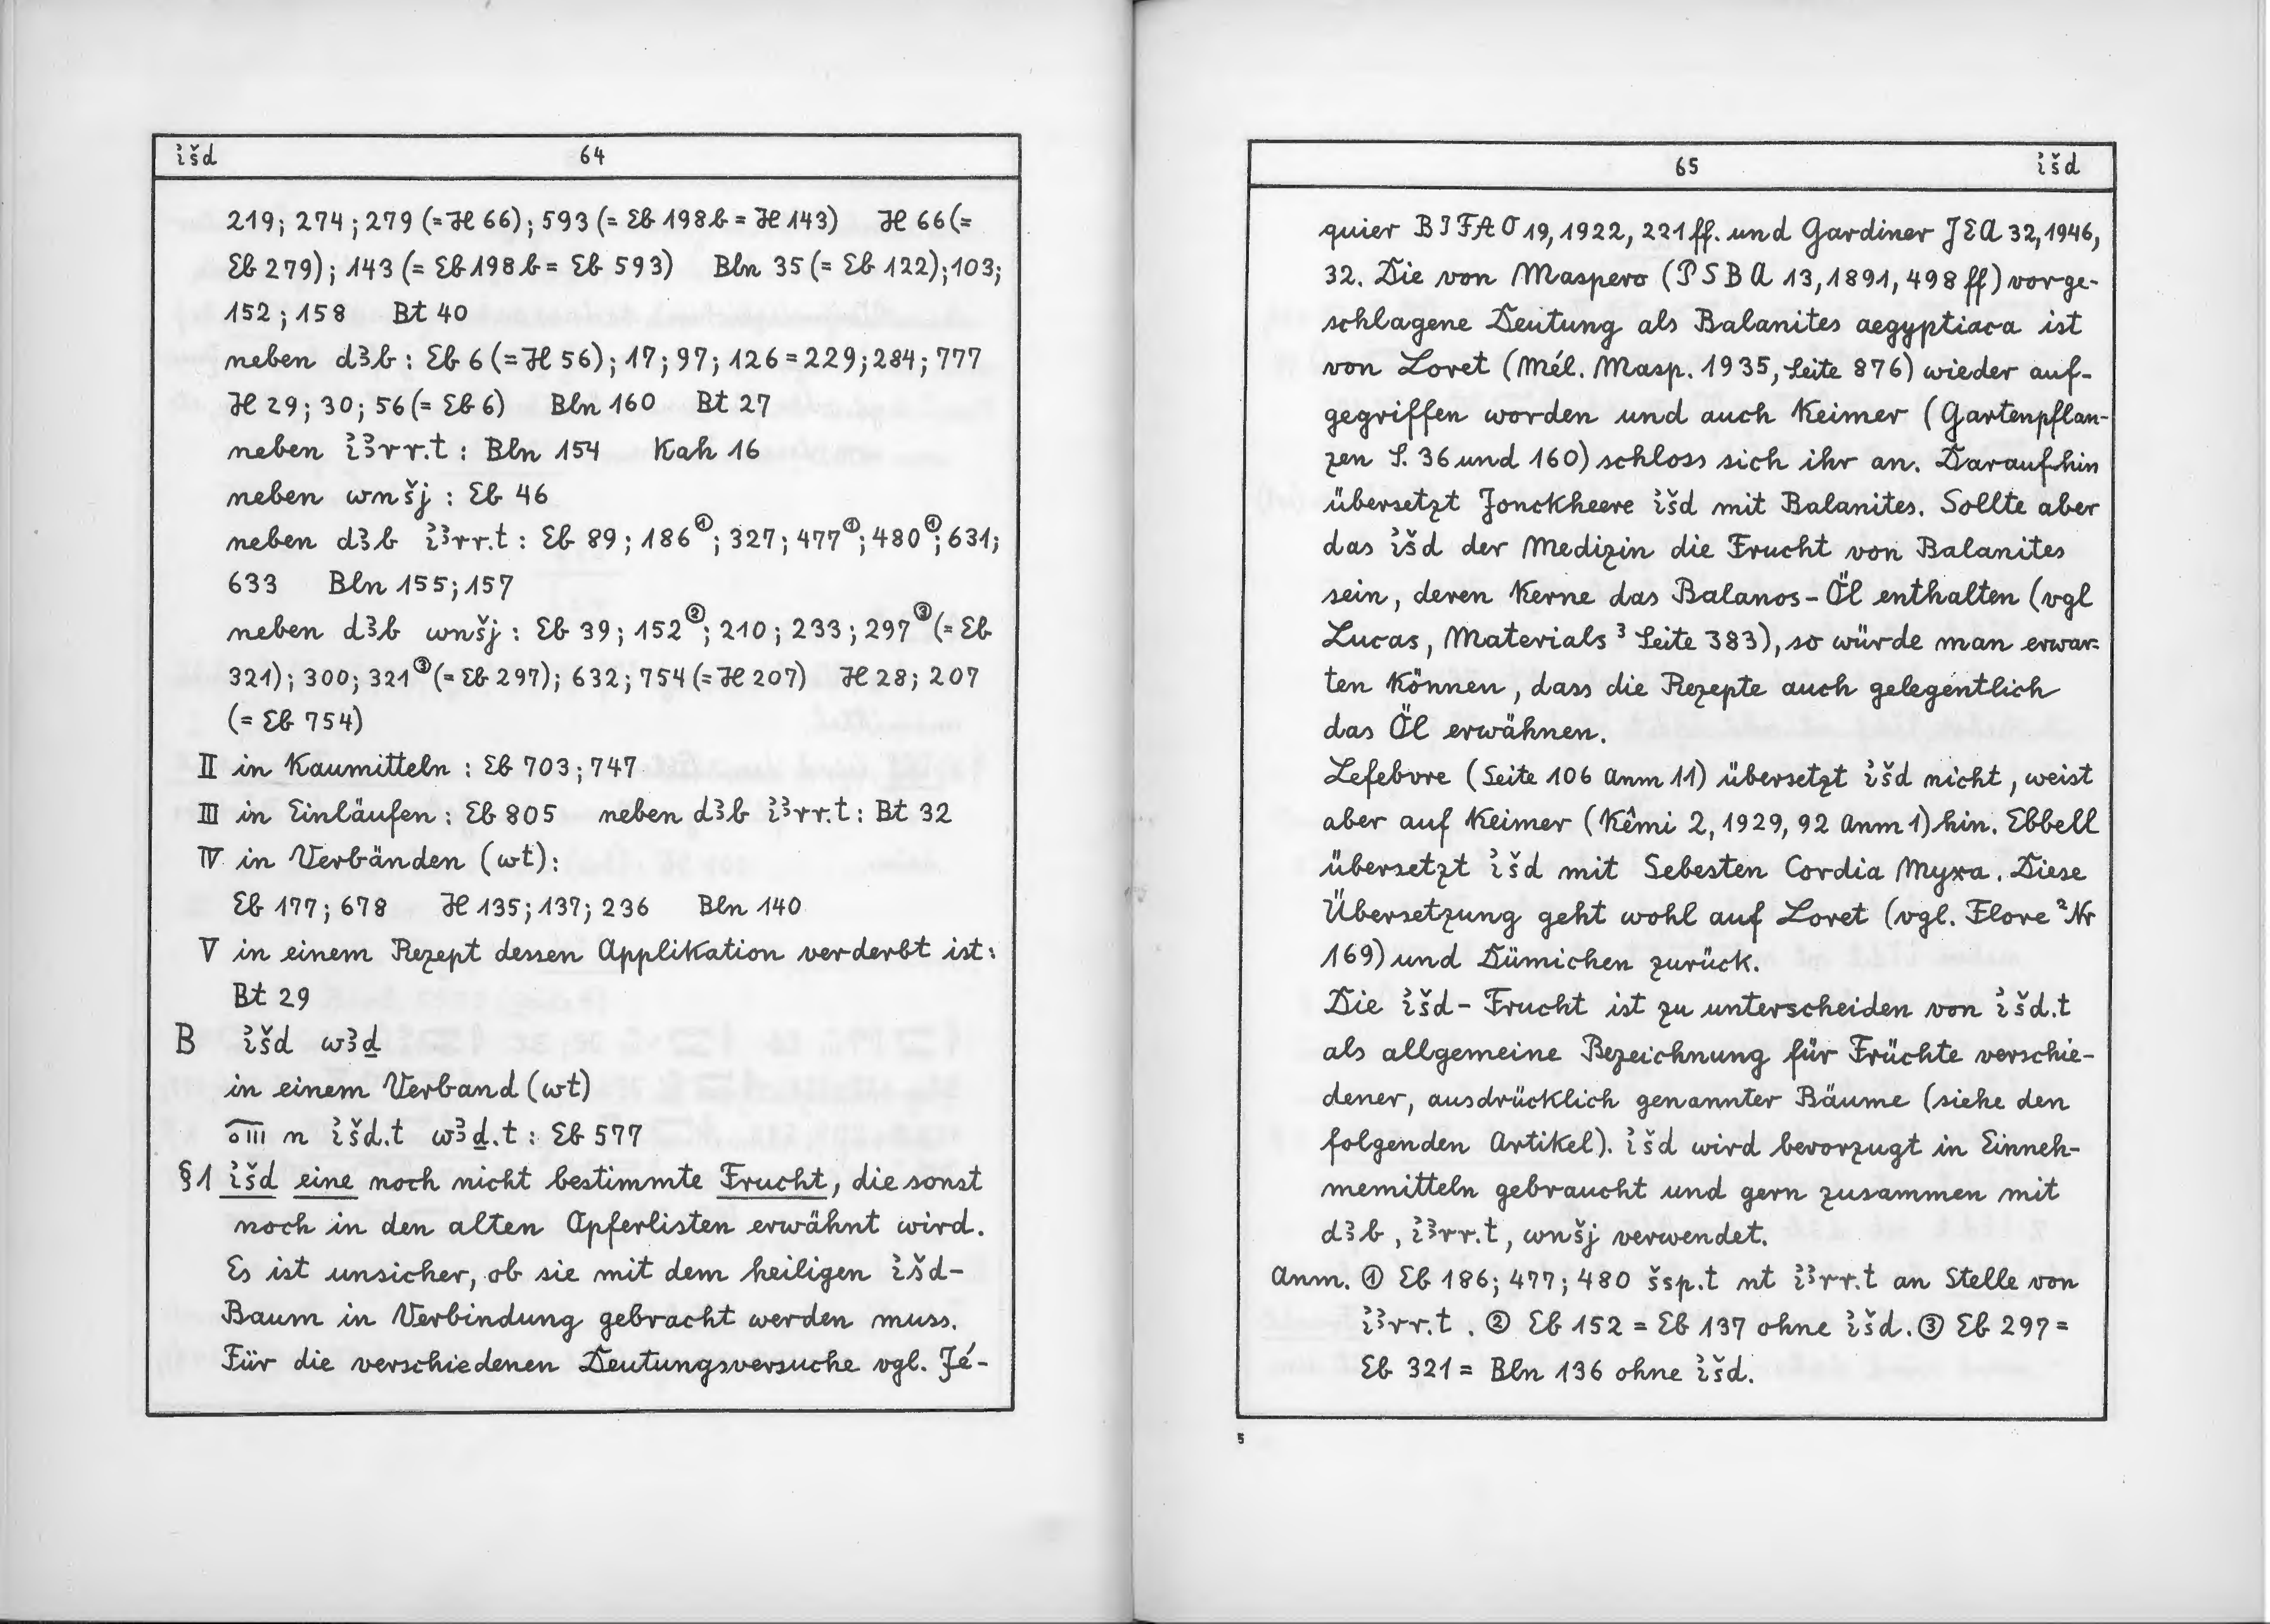 ỉšd 64
219; 274; 279 (= H 66); 593 (= Eb 198b = H 143) H 66 (=
Eb 279); 143 (= Eb 198b = Eb 593) Bln 35 (= Eb 122); 103;
152; 158 Bt 40
neben dꜣb : Eb 6 (= H 56); 17; 97; 126 = 229; 284; 777
H 29; 30; 56 (= Eb 6) Bln 160 Bt 27
neben ỉꜣrr.t : Bln 154 Kah 16
neben wnšj : Eb 46
neben dꜣb ỉꜣrr.t : Eb 89; 186①; 327; 477①; 480①; 631;
633 Bln 155; 157
neben dꜣb wnšj : Eb 39; 152②; 210; 233; 297③ (= Eb
321); 300; 321③ (= Eb 297); 632; 754 (= H 207) H 28; 207
(= Eb 754)
II in Kaumitteln : Eb 703; 747
III in Einläufen : Eb 805 neben dꜣb ỉꜣrr.t : Bt 32
IV in Verbänden (wt) :
Eb 177; 678 H 135; 137; 236 Bln 140
V in einem Rezept dessen Applikation verderbt ist:
Bt 29
B ỉšd wꜣḏ
in einem Verband (wt)
n ỉšd.t wꜣḏ.t : Eb 577
§1 ỉšd eine noch nicht bestimmte Frucht, die sonst
noch in den alten Opferlisten erwähnt wird.
Es ist unsicher, ob sie mit dem heiligen ỉšd-
Baum in Verbindung gebracht werden muss.
Für die verschiedenen Deutungsversuche vgl. Jé-
65 ỉšd
quier BIFAO 19, 1922, 221 ff. und Gardiner JEA 32, 1946,
32. Die von Maspero (PSBA 13, 1891, 498 ff) vorge-
schlagene Deutung als Balanites aegyptiaca ist
von Loret (Mél. Masp. 1935, Seite 876) wieder auf-
gegriffen worden und auch Keimer (Gartenpflan-
zen S. 36 und 160) schloss sich ihr an. Daraufhin
übersetzt Jonckheere ỉšd mit Balanites. Sollte aber
das ỉšd der Medizin die Frucht von Balanites
sein, deren Kerne das Balanos-Öl enthalten (vgl
Lucas, Materials ³ Seite 383), so würde man erwar-
ten können, dass die Rezepte auch gelegentlich
das Öl erwähnen.
Lefebvre (Seite 106 Anm 11) übersetzt ỉšd nicht, weist
aber auf Keimer (Kêmi 2, 1929, 92 Anm 1) hin. Ebbell
übersetzt ỉšd mit Sebesten Cordia Myxa. Diese
Übersetzung geht wohl auf Loret (vgl. Flore ² Nr
169) und Dümichen zurück.
Die ỉšd-Frucht ist zu unterscheiden von ỉšd.t
als allgemeine Bezeichnung für Früchte verschie-
dener, ausdrücklich genannter Bäume (siehe den
folgenden Artikel). ỉšd wird bevorzugt in Einneh-
memitteln gebraucht und gern zusammen mit
dꜣb, ỉꜣrr.t, wnšj verwendet.
Anm. ① Eb 186; 477; 480 šsp.t nt ỉꜣrr.t an Stelle von
ỉꜣrr.t . ② Eb 152 = Eb 137 ohne ỉšd. ③ Eb 297 =
Eb 321 = Bln 136 ohne ỉšd.
5